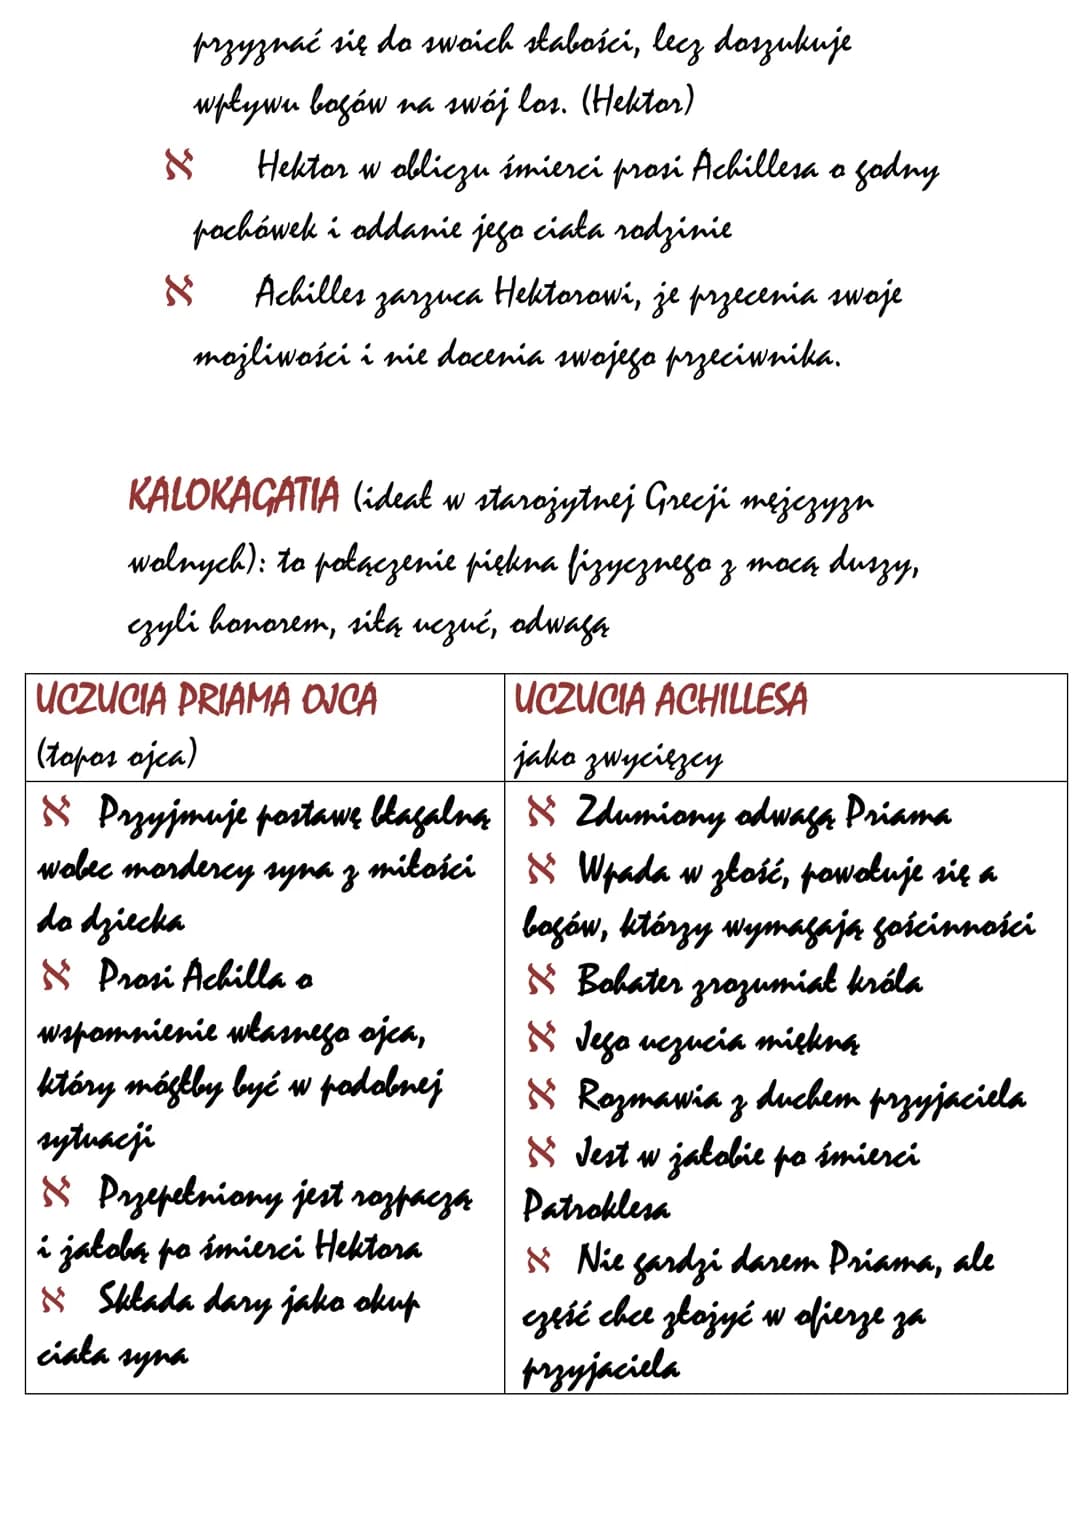 przyznać się do swoich słabości, lecz doszukuje
wpływu bogów na swój los. (Hektor)
א Hektor w obliczu śmierci prosi Achillesa o godny
pochówek i oddanie jego ciała rodzinie
א Achilles zarzuca Hektorowi, że przecenia swoje
możliwości i nie docenia swojego przeciwnika.
KALOKAGATIA (ideał w starożytnej Grecji mężczyzn
wolnych): to połączenie piękna fizycznego z mocą duszy,
czyli honorem, siłą uczuć, odwagą
UCZUCIA PRIAMA OJCA
(topos ojca)
UCZUCIA ACHILLESA
jako zwycięzcy
א Przyjmuje postawę błagalną
wobec mordercy syna z miłości
do dziecka
א Prosi Achilla o
wspomnienie własnego ojca,
który mógłby być w podobnej
sytuacji
א Przepełniony jest rozpaczą
i żałobą po śmierci Hektora
א Składa dary jako okup
ciała syna
א Zdumiony odwagą Priama
א Wpada w złość, powołuje się a
bogów, którzy wymagają gościnności
א Bohater zrozumiał króla
א Jego uczucia miękną
א Rozmawia z duchem przyjaciela
א Jest w żałobie po śmierci
Patroklesa
א Nie gardzi darem Priama, ale
część chce złożyć w ofierze za
przyjaciela